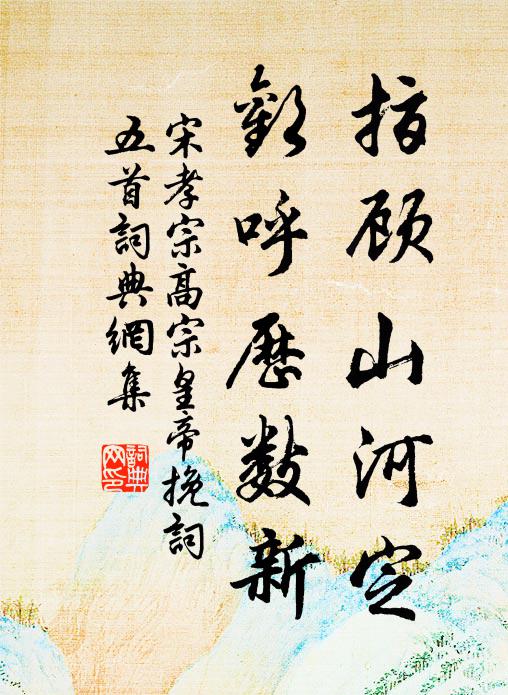 指顾山河定
欢呼历数新
宋孝宗高宗皇帝挽詞
五首詞典網集
詞典
网印